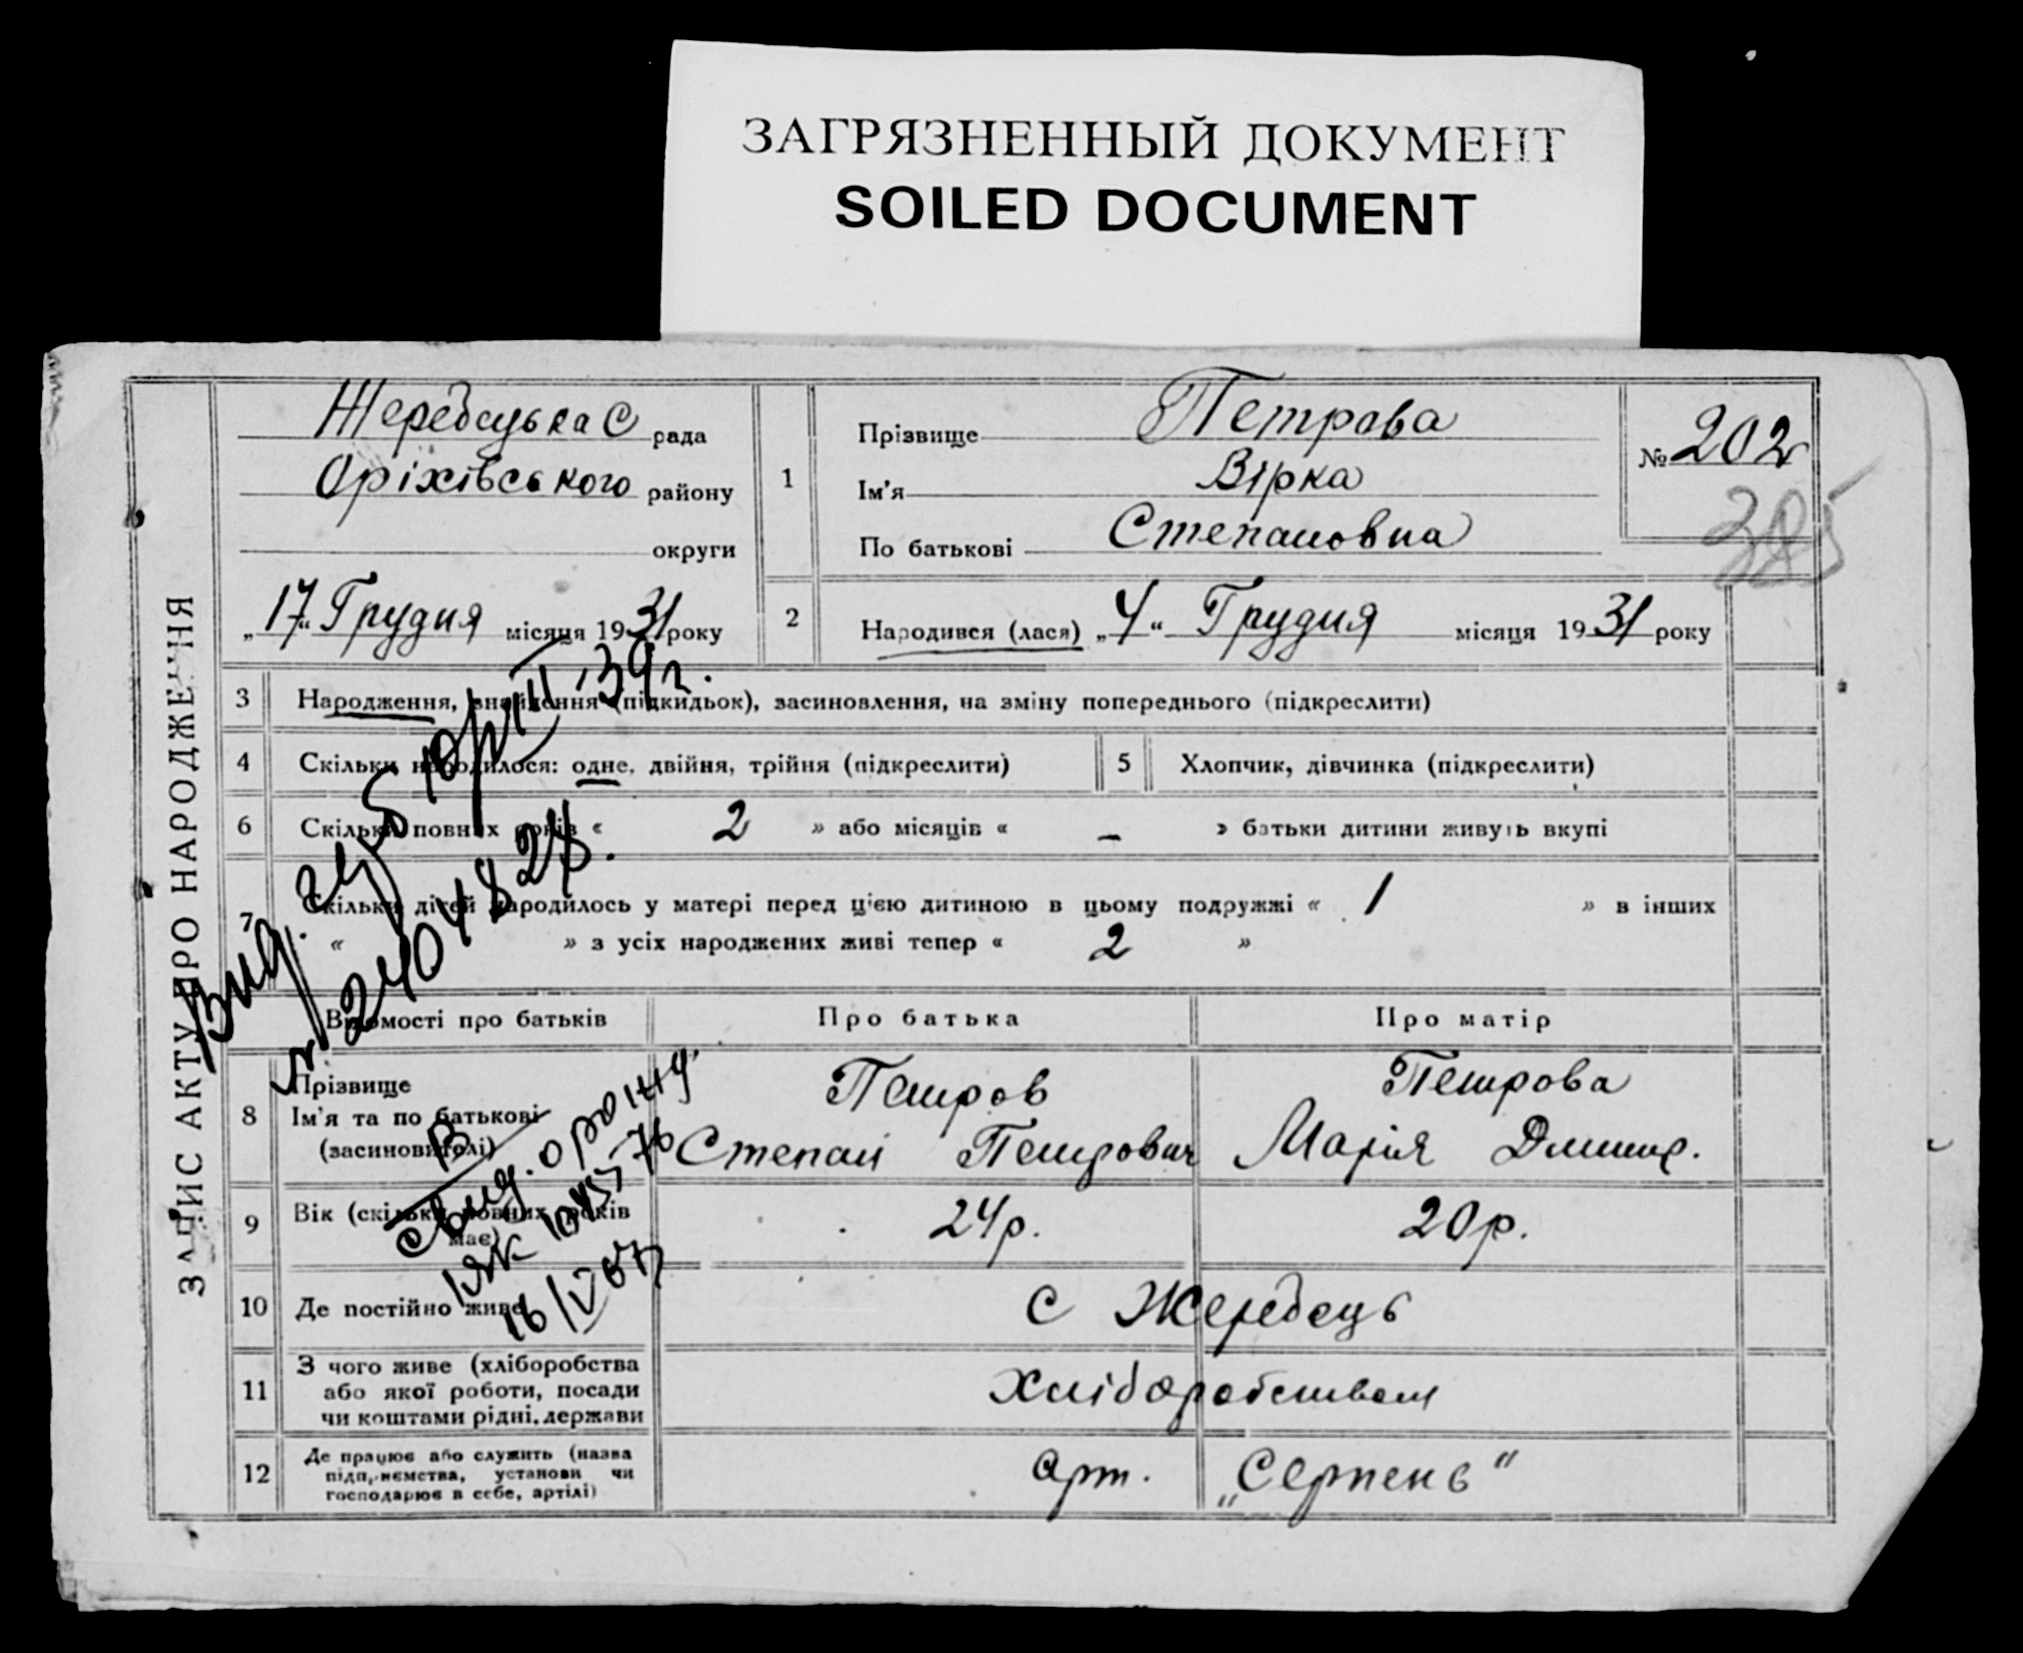 ЗАГРЯЗНЕННЫЙ ДОКУМЕНТ
SOILED DOCUMENT
ЗАПИС АКТУ ПРО НАРОДЖЕННЯ
Жеребецька С рада
Оріхівського району
округи
„17“ Грудня місяця 1931 року
1
Прізвище Петрова
Ім'я Вірка
По батькові Степановна
№ 202
385
2
Народився (лася) „4“ Грудня місяця 1931 року
3 Народження, знайдення (підкидьок), засиновлення, на зміну попереднього (підкреслити)
4 Скільки народилося: одне, двійня, трійня (підкреслити) 5 Хлопчик, дівчинка (підкреслити)
6 Скільки повних років « 2 » або місяців « – » батьки дитини живуть вкупі
7 Скільки дітей народилось у матері перед цією дитиною в цьому подружжі « 1 » в інших
« » з усіх народжених живі тепер « 2 »
Відомості про батьків Про батька Про матір
8 Прізвище
Ім'я та по батькові
(засиновителі)
Петров
Степан Петрович
Петрова
Марія Дмитр.
9 Вік (скільки повних років
має)
24р. 20р.
10 Де постійно живе с Жеребець
11 З чого живе (хліборобства
або якої роботи, посади
чи коштами рідні, держави
Хліборобством
12 Де працює або служить (назва
підприємства, установи чи
господарює в себе, артілі)
арт. „Серпень“
39г.